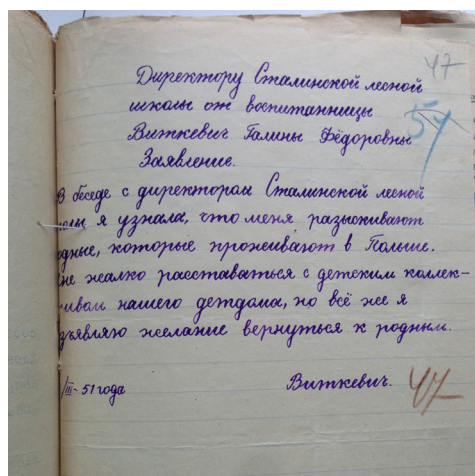 47
Директору Сталинской лесной
школы от воспитанницы
54
Виткевич Галины Фёдоровны
Заявление.
В беседе с директором Сталинской лесной
колы я узнала, что меня разыскивают
одные, которые проживают в Польше.
не жалко расставаться с детским коллек-
ивом нашего детдома, но всё же я
зъявляю желание вернуться к родным.
/III-51 года Виткевич. 47